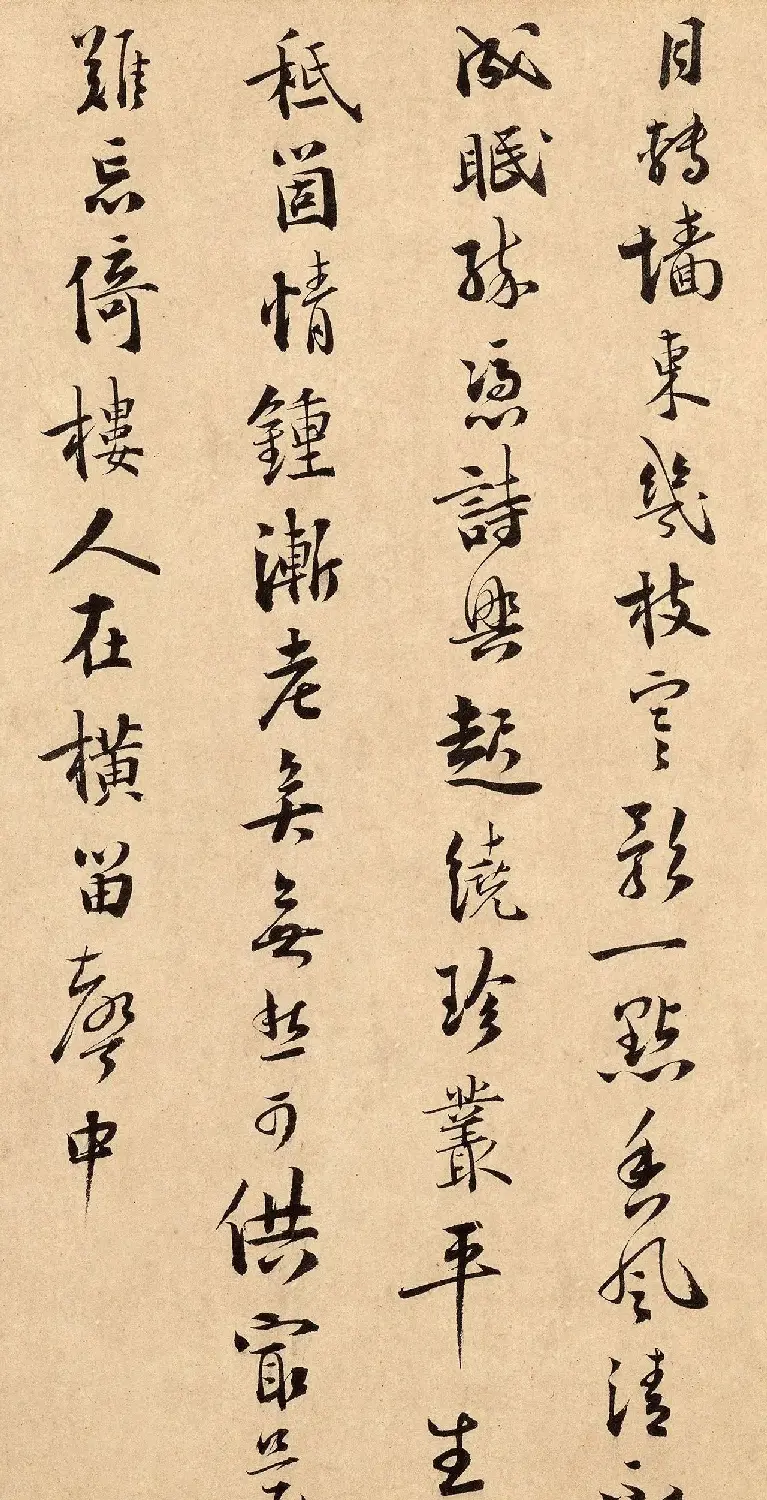 月轉墻東幾枝寒影一點香風清不
成眠醉憑詩興起繞珍叢平生
秪箇情鍾漸老矣無愁可供寂是
難忘倚樓人在橫笛聲中